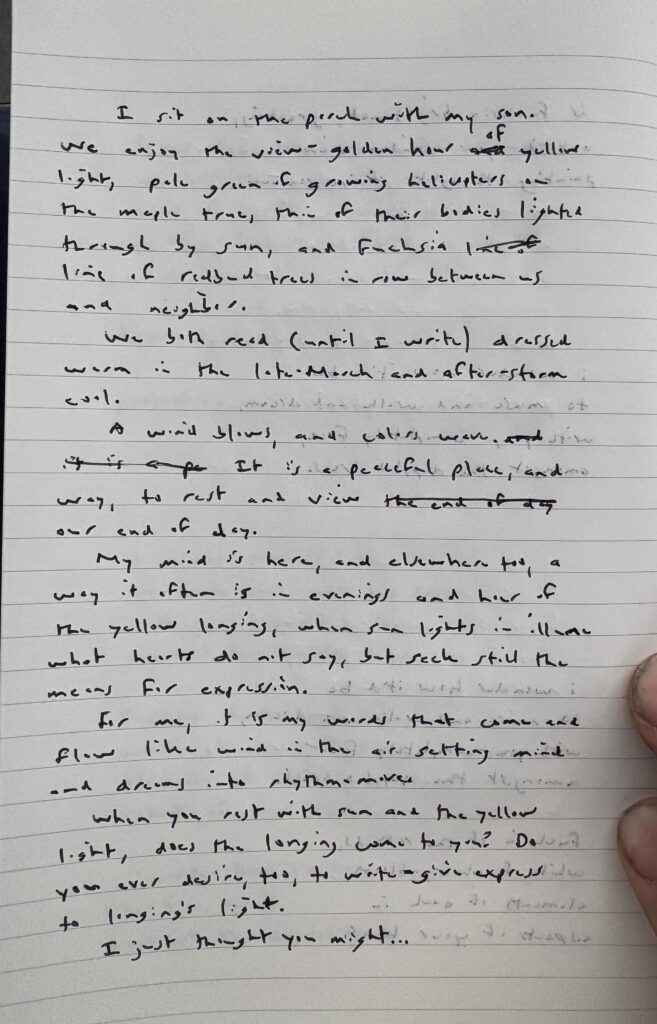 I sit on the porch with my son.
We enjoy the view - golden hour of yellow
light, pale green of growing helicopters on
the maple tree, thin of their bodies lighted
through by sun, and fuchsia line of
line of redbud trees in row between us
and neighbor.
We both read (until I write) dressed
warm in the late-March and after-storm
cool.
A wind blows, and colors wave. and
it is a pe It is a peaceful place, and
way, to rest and view the end of day
our end of day.
My mind is here, and elsewhere too, a
way it often is in evenings and hour of
the yellow longing, when sun lights in illume
what hearts do not say, but seek still the
means for expression.
For me, it is my words that come and
flow like wind in the air setting mind
and dreams into rhythm-moves
When you rest with sun and the yellow
light, does the longing come to you? Do
you ever desire, too, to write - give express
to longing's light.
I just thought you might...